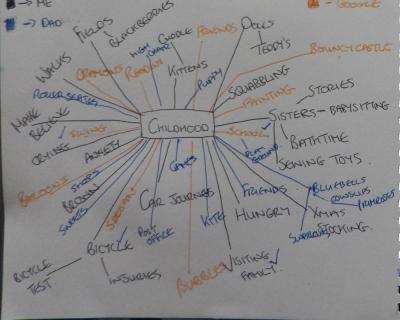 ME
GOOGLE
DAD
FIELDS
BLACKBERRIES
FRIENDS
DOLLS
TEDDY'S
BOUNCY CASTLE
WALKS
CRAYONS
READING
HIGH
CHAIR
KITTENS
PUPPY
SQUABBLING
STORIES
ROLLER SKATES
PAINTING
MAKE
BELIEVE
SISTERS - BABYSITTING
CHILDHOOD
SCHOOL
BATHTIME
CRYING
ANXIETY
PLAY
GROUND
SEWING TOYS
GAMES
BALLOONS
SHOPS
SWEETS
CAR JOURNEYS
FRIENDS
BLUEBELLS
COWSLIPS
PRIMROSES
KITE
HUNGRY
XMAS
STOCKING
BICYCLE
POST
OFFICE
VISITING
FAMILY
BICYCLE
TEST
INJURIES
BUBBLES